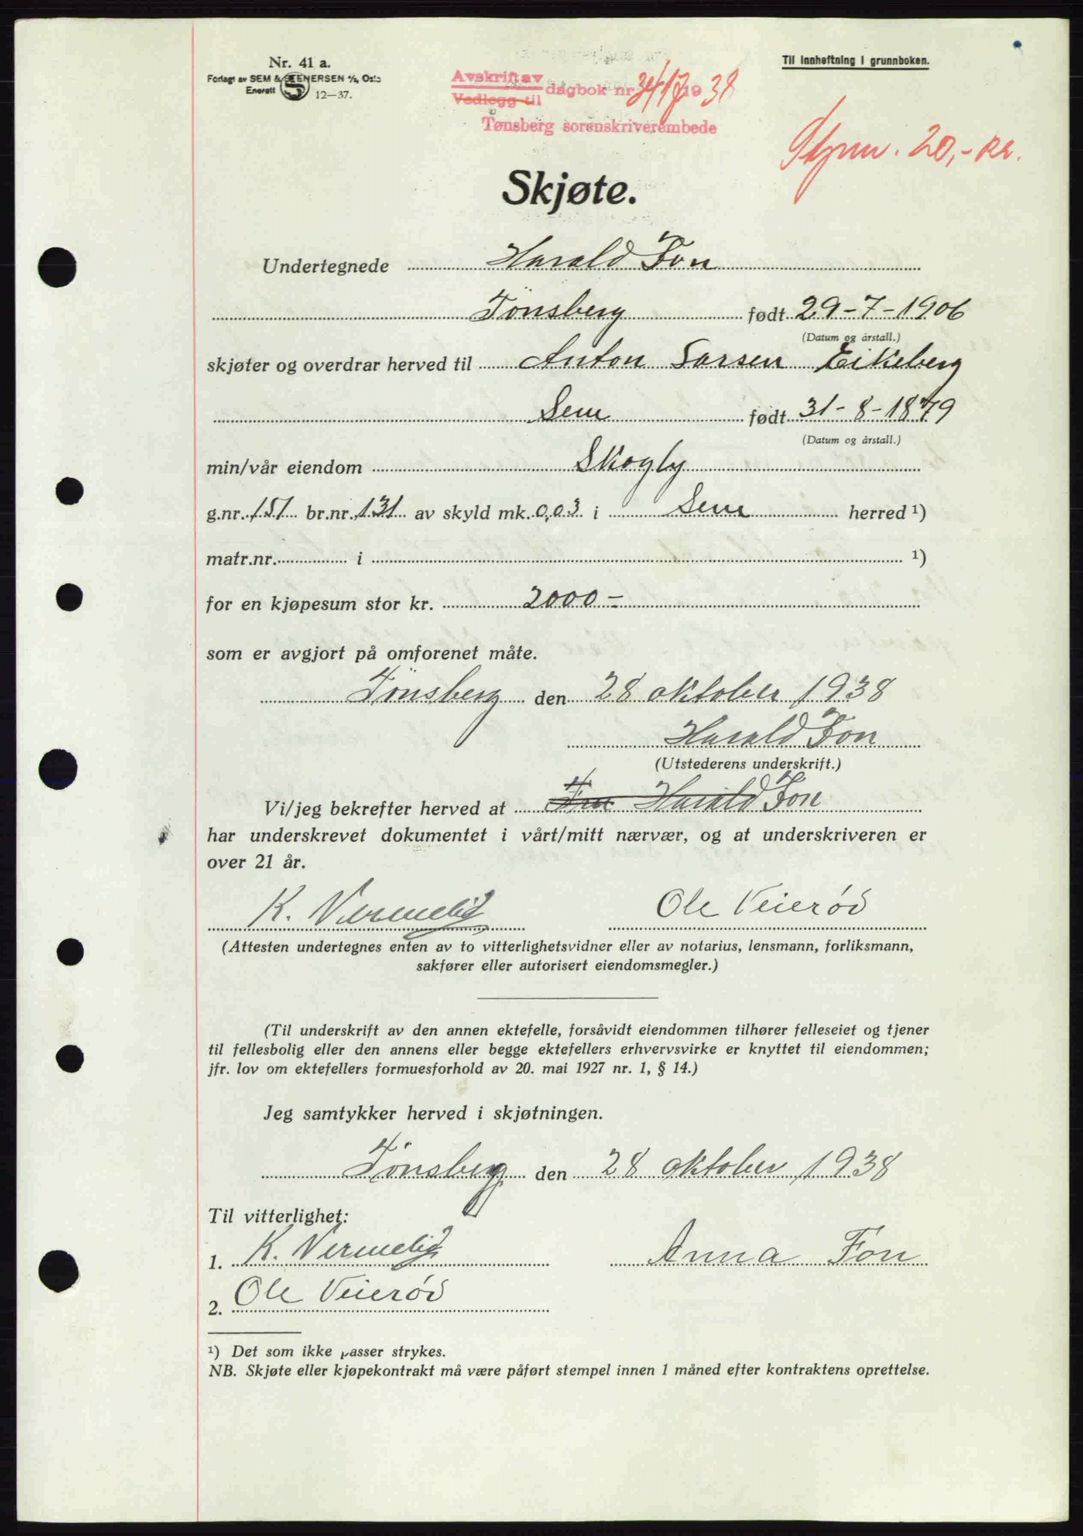 Nr. 41 a.
Forlagt av SEM & STENERSEN A/S, Oslo
Enerett S 12—37.
Til innheftning i grunnboken.
Avskrift av
Vedlegg til dagbok nr. 3417 1938
Tønsberg sorenskriverembede
Stpm. 20,- kr.
Skjøte.
Undertegnede Harald Fon
Tönsberg født 29-7-1906
(Datum og årstall.)
skjøter og overdrar herved til Anton Larsen Eikeberg
Sem født 31-8-1879
(Datum og årstall.)
min/vår eiendom Skogly
g.nr. 151 br.nr. 131 av skyld mk. 0,03 i Sem herred ¹)
matr.nr. i ¹)
for en kjøpesum stor kr. 2000-
som er avgjort på omforenet måte.
Tönsberg den 28 oktober 1938
Harald Fon
(Utstederens underskrift.)
Vi/jeg bekrefter herved at Fru Harald Fon
har underskrevet dokumentet i vårt/mitt nærvær, og at underskriveren er
over 21 år.
K. Vermelid Ole Veierød
(Attesten undertegnes enten av to vitterlighetsvidner eller av notarius, lensmann, forliksmann,
sakfører eller autorisert eiendomsmegler.)
(Til underskrift av den annen ektefelle, forsåvidt eiendommen tilhører felleseiet og tjener
til fellesbolig eller den annens eller begge ektefellers erhvervsvirke er knyttet til eiendommen;
jfr. lov om ektefellers formuesforhold av 20. mai 1927 nr. 1, § 14.)
Jeg samtykker herved i skjøtningen.
Tönsberg den 28 oktober 1938
Til vitterlighet:
1. K. Vermelid Anna Fon
2. Ole Veierød
¹) Det som ikke passer strykes.
NB. Skjøte eller kjøpekontrakt må være påført stempel innen 1 måned efter kontraktens oprettelse.